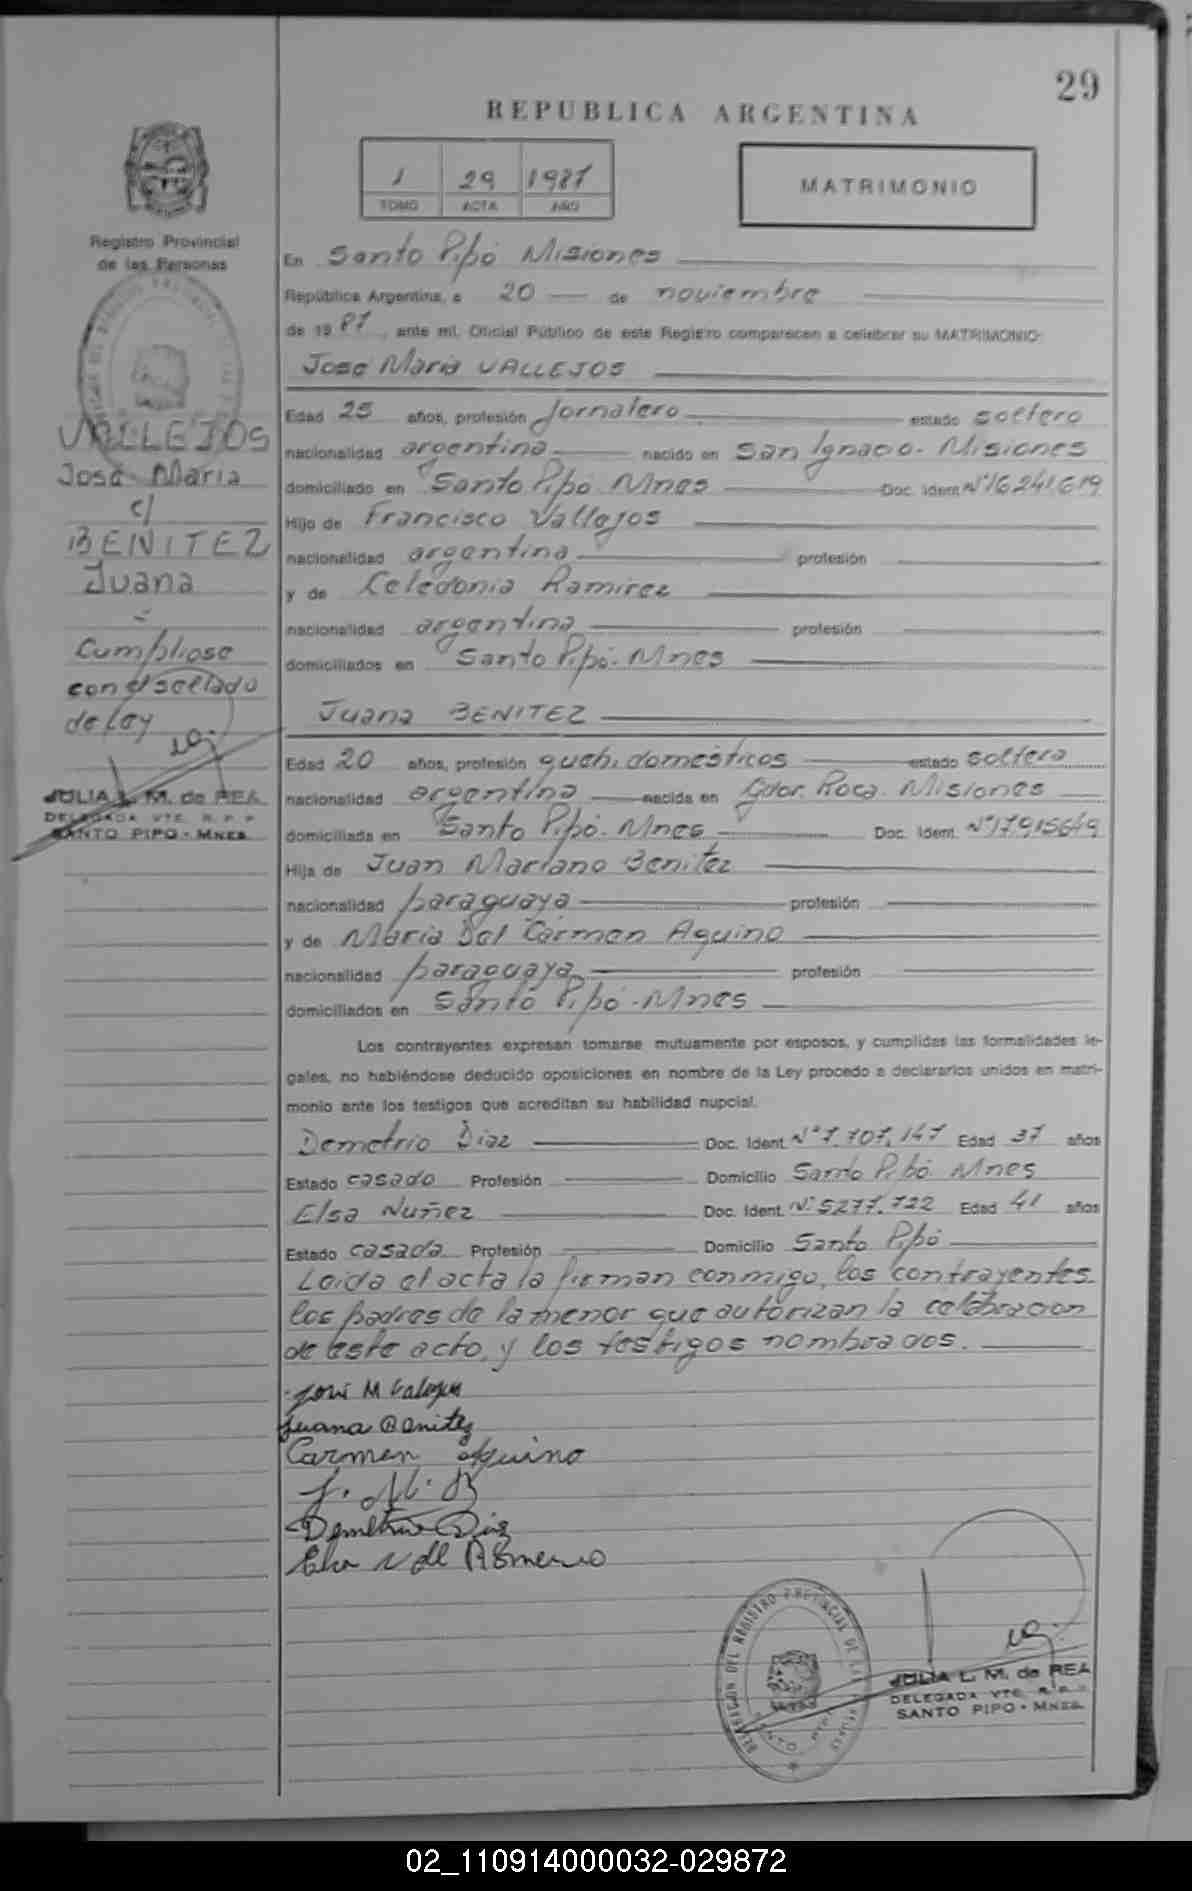 29
REPUBLICA ARGENTINA
1 29 1987
TOMO ACTA AÑO
MATRIMONIO
Registro Provincial
de las Personas
VALLEJOS
José Maria
c/
BENITEZ
Juana
=
Cumpliose
con el sellado
de Ley
JULIA L. M. de REA
DELEGADA VTE. R. P. P
SANTO PIPO - MNES.
En Santo Pipó Misiones
República Argentina, a 20 de noviembre
de 1987, ante mí, Oficial Público de este Registro comparecen a celebrar su MATRIMONIO:
José Maria VALLEJOS
Edad 25 años, profesión Jornalero estado soltero
nacionalidad argentina nacido en San Ignacio - Misiones
domiciliado en Santo Pipó. Mnes Doc. Ident. Nº 16241619
Hijo de Francisco Vallejos
nacionalidad argentina profesión
y de Celedonia Ramirez
nacionalidad argentina profesión
domiciliados en Santo Pipó - Mnes
Juana BENITEZ
Edad 20 años, profesión queh. domésticos estado soltera
nacionalidad argentina nacida en Gdor. Roca. Misiones
domiciliada en Santo Pipó. Mnes Doc. Ident. Nº 17915649
Hija de Juan Mariano Benitez
nacionalidad paraguaya profesión
y de Maria Del Carmen Aquino
nacionalidad paraguaya profesión
domiciliados en Santo Pipó - Mnes
Los contrayentes expresan tomarse mutuamente por esposos, y cumplidas las formalidades le-
gales, no habiéndose deducido oposiciones en nombre de la Ley procedo a declararlos unidos en matri-
monio ante los testigos que acreditan su habilidad nupcial.
Demetrio Diaz Doc. Ident. Nº 7.707.147 Edad 37 años
Estado casado Profesión Domicilio Santo Pipó Mnes
Elsa Nuñez Doc. Ident. Nº 5277.722 Edad 41 años
Estado casada Profesión Domicilio Santo Pipó
Leida el acta la firman conmigo, los contrayentes
los padres de la menor que autorizan la celebracion
de este acto, y los testigos nombrados.
José M Vallejos
Juana Benitez
Carmen Aquino
J. M. B
Demetrio Diaz
Elsa N de
DELEGACION DEL REGISTRO PROVINCIAL DE LAS
SANTO PIPO
JULIA L. M. de REA
DELEGADA VTE. R. P. P
SANTO PIPO - MNES.
02_110914000032-029872